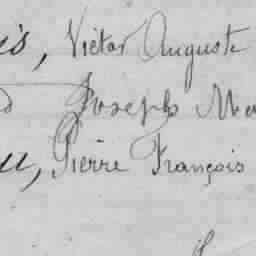 is, Victor Auguste
Joseph Ma
u, Pierre François